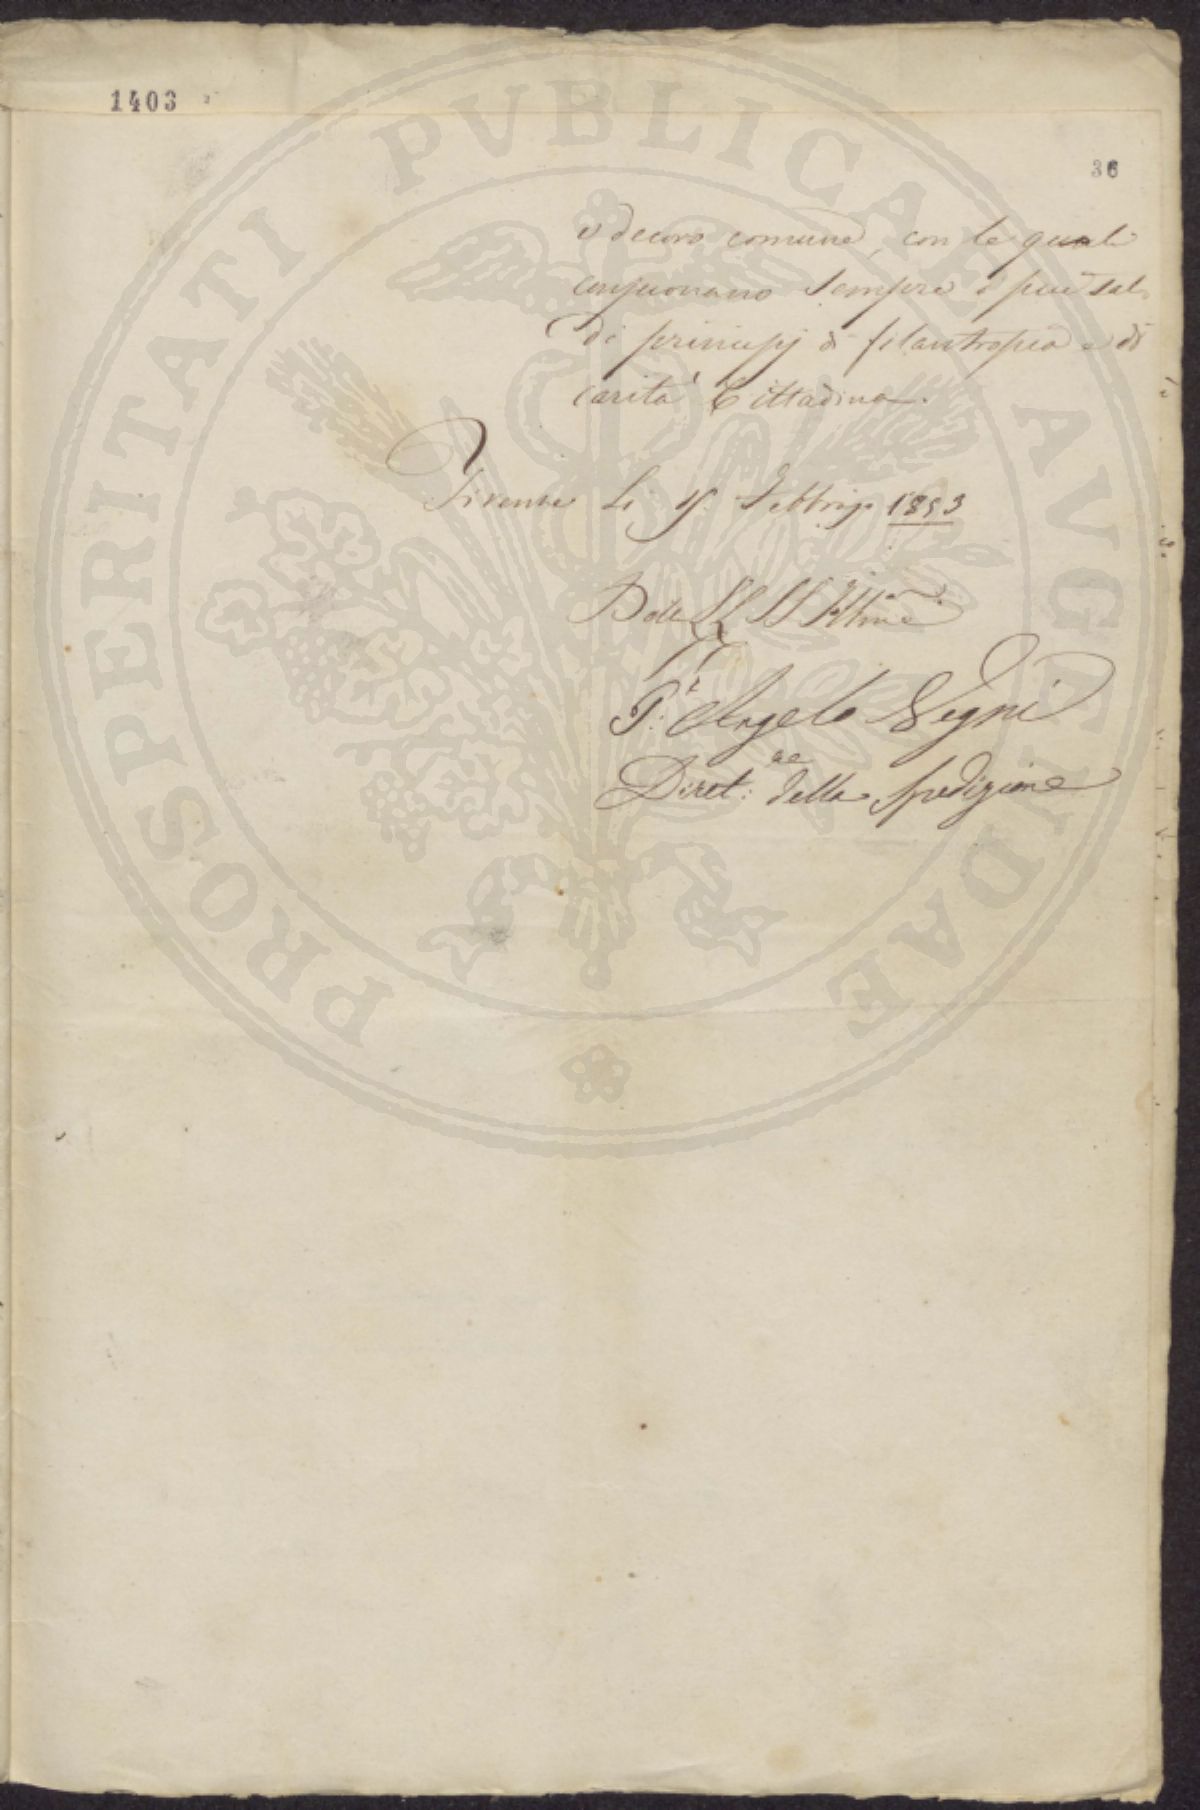 1403
36
e decoro comune, con le quali
sempre i piu sal-
di principj di filantropia e di
carità Cittadina.
Firenze li Febbrajo 1853
Delle LL SS Illme
Angelo Vegni
Diret:re della Spedizione
PROSPERITATI PVBLICAE AVGENDAE